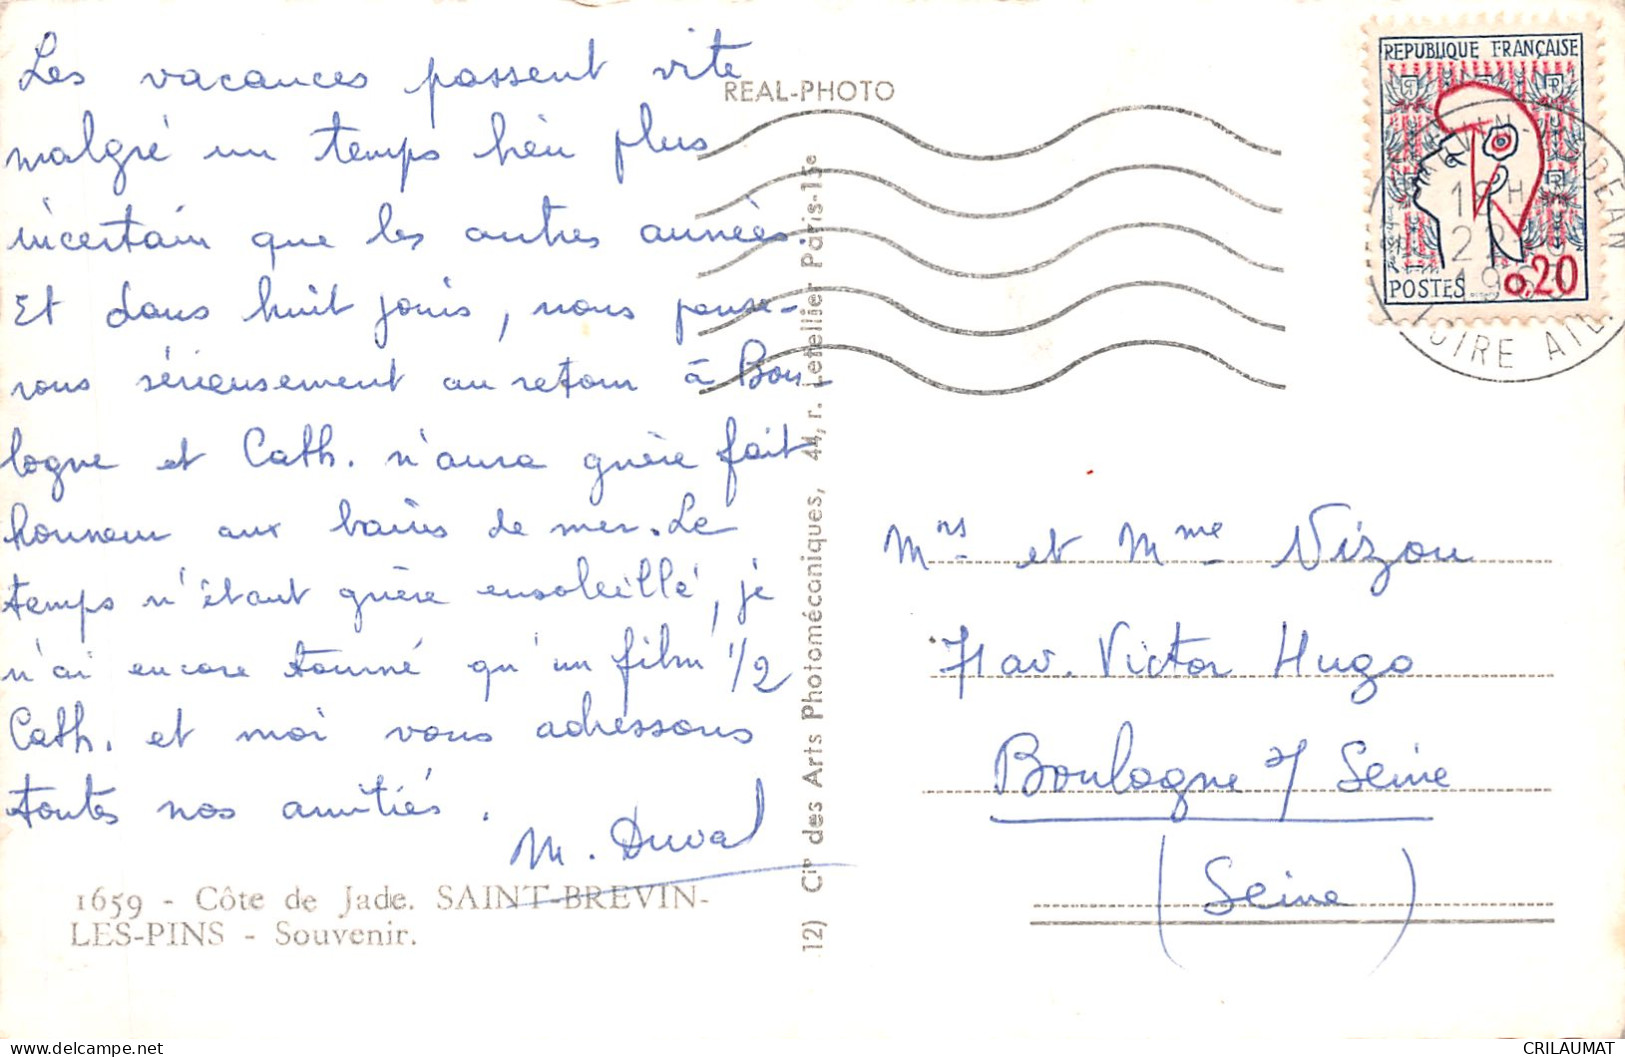 Les vacances passent vite
malgré un temps bien plus
incertain que les autres années.
Et dans huit jours, nous pense-
rons sérieusement au retour à Bou-
logne et Cath. n'aura guère fait
honneur aux bains de mer. Le
temps n'étant guère ensoleillé, je
n'ai encore tourné qu'un film 1/2
Cath. et moi vous adressons
toutes nos amitiés.
M. Duval
1659 - Côte de Jade. SAINT-BREVIN-
LES-PINS - Souvenir.
REAL-PHOTO
12) Cie des Arts Photomécaniques, 44, r. Letellier Paris-15e
REPUBLIQUE FRANÇAISE
POSTES 0,20
LOIRE ATL.
Mrs et Mme Vizou
71 av. Victor Hugo
Boulogne s/ Seine
(Seine)
delcampe.net
CRILAUMAT